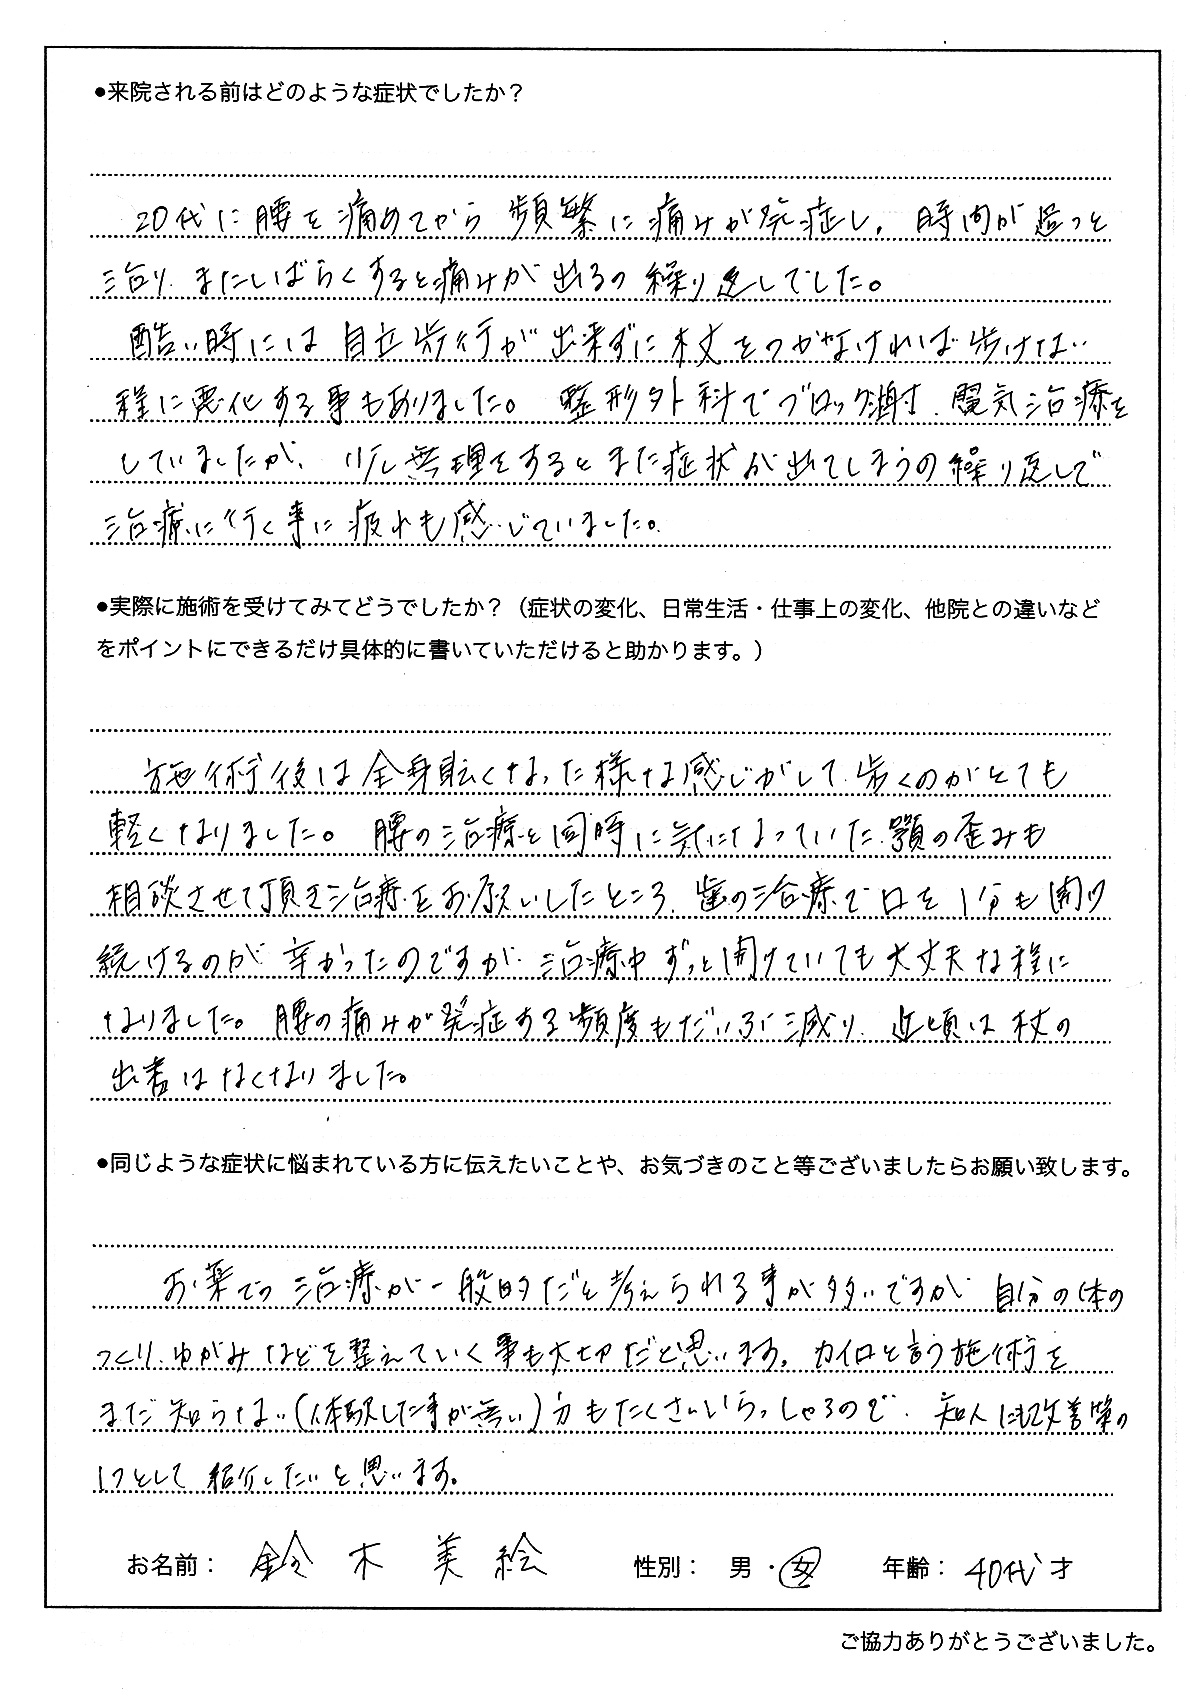 ●来院される前はどのような症状でしたか？
20代に腰を痛めてから頻繁に痛みが発症し、時間が経つと
治り、またしばらくすると痛みが出るの繰り返しでした。
酷い時には自立歩行が出来ずに杖をつかなければ歩けない
程に悪化する事もありました。整形外科でブロック注射、電気治療を
していましたが、少し無理をするとまた症状が出てしまうの繰り返しで
治療に行く事に疲れも感じていました。
●実際に施術を受けてみてどうでしたか？（症状の変化、日常生活・仕事上の変化、他院との違いなど
をポイントにできるだけ具体的に書いていただけると助かります。）
施術後は全身軽くなった様な感じがして、歩くのがとても
軽くなりました。腰の治療と同時に気になっていた顎の歪みも
相談させて頂き治療をお願いしたところ、歯の治療で口を1分も開け
続けるのが辛かったのですが、治療中ずっと開けていても大丈夫な程に
なりました。腰の痛みが発症する頻度もだいぶ減り、近頃は杖の
出番はなくなりました。
●同じような症状に悩まれている方に伝えたいことや、お気づきのこと等ございましたらお願い致します。
お薬での治療が一般的だと考えられる事が多いですが、自分の体の
つくり、ゆがみなどを整えていく事も大切だと思います。カイロと言う施術を
まだ知らない（体験した事が無い）方もたくさんいらっしゃるので、知人にも改善策の
1つとして紹介したいと思います。
お名前： 鈴木美絵 性別： 男・女 年齢： 40代才
ご協力ありがとうございました。